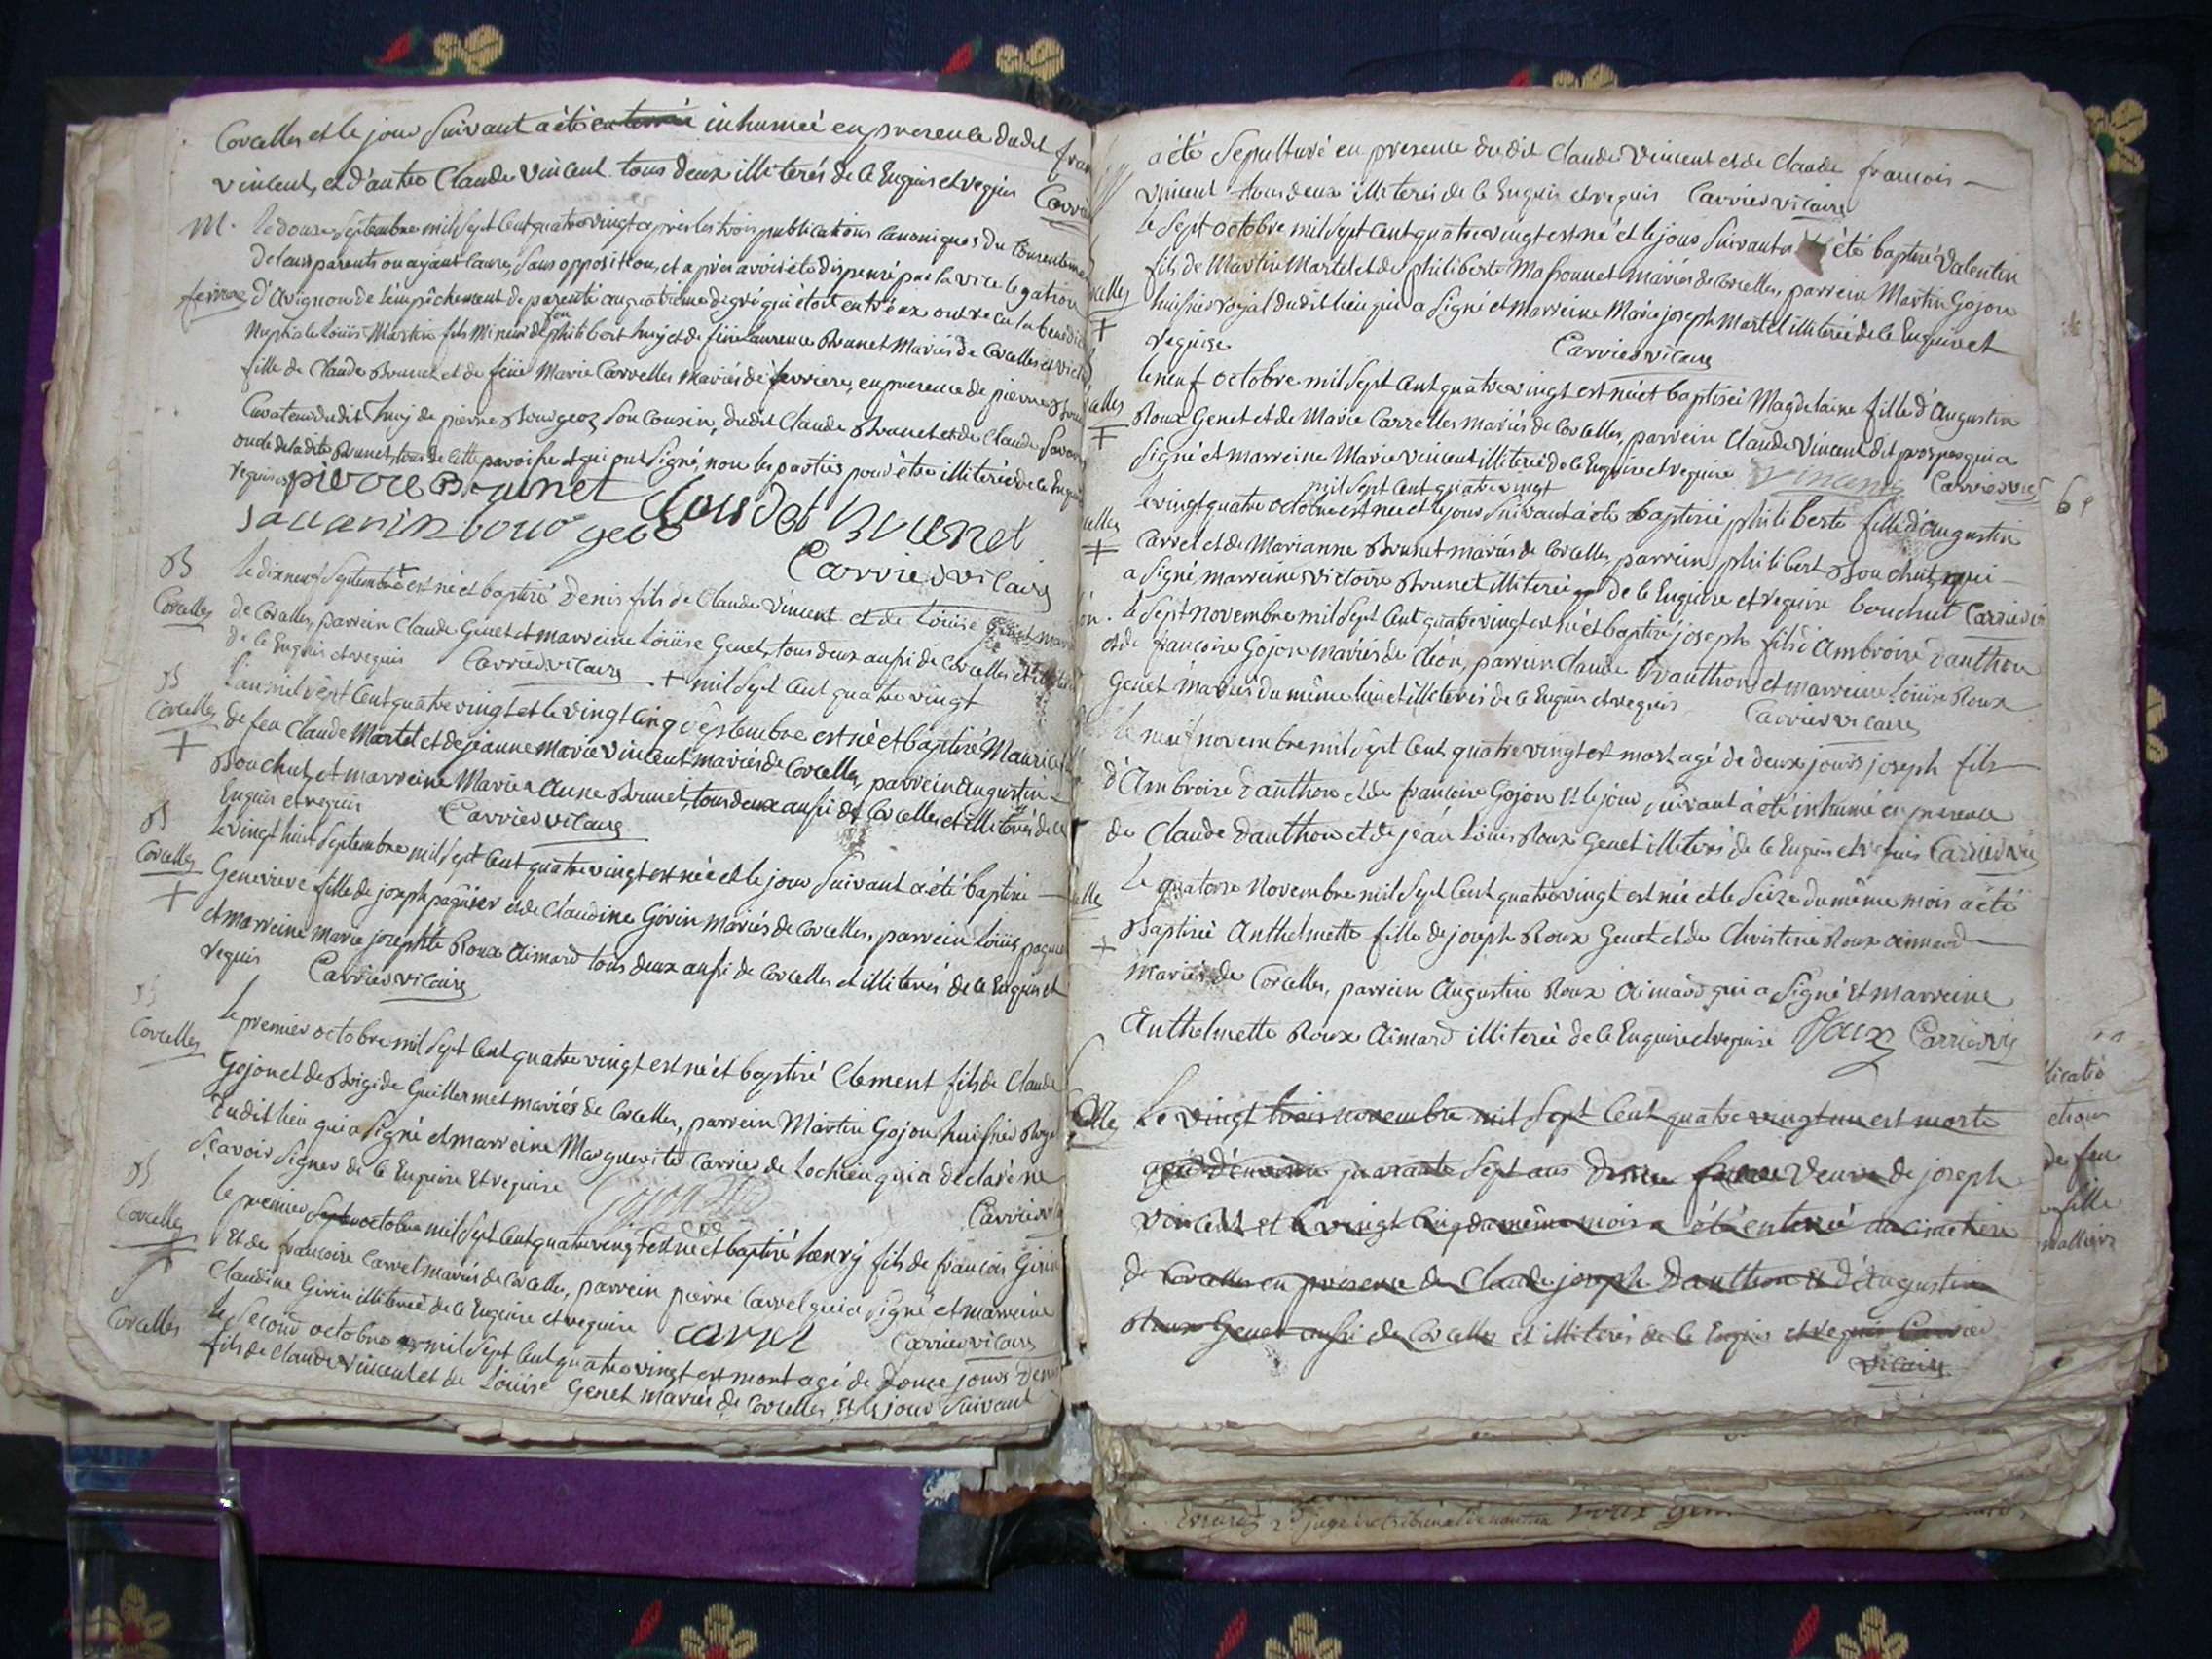 Corcelles et le jour suivant a été enterrée inhumée en presence dudit fran
vincent, et d'autre Claude vincent tous deux illiterés de ce Enquis et requis Carrie
M. le douze septembre mil sept cent quatre vingt après les trois publications canoniques du consenteme
de leurs parents ou ayant cause, sans opposition, et après avoir été dispensé par la vice legation
d'Avignon de l'empêchement de parenté au quatrieme degré qui étoit entr'eux ont reçu la benedic
nuptiale Loüis Martin fils mineur de feu philibert et de feüe Laurence Brunet mariés de Corcelles et vict
fille de Claude Brunet et de feüe Marie Carrelles mariés de ferriere, en presence de pierre Brun
Curateur dudit de pierre Bourgeoz son cousin, dudit Claude Brunet et de Claude Savar
oncle de la dite Brunet, tous de cette paroisse et qui ont signé, non les parties pour être illiterées de ce Enqui
requises pierre Brunet Claude Brunet
savarin bourgeoz
Carrier vicaire
B
Corcelles
le dix neuf septembre + est né et baptisé Denis fils de Claude vincent et de Loüise Genet mar
de Corcelles, parrein Claude Genet et marreine Loüise Genet, tous deux aussi de Corcelles et
de ce Enquis et requis Carrier vicaire + mil sept cent quatre vingt
B
Corcelles
+
L'an mil sept cent quatre vingt et le vingt cinq septembre est né et baptisé Maurice
de feu Claude Martel et de jeanne Marie vincent mariés de Corcelles, parrein Augustin
Bouchut, et marreine Marie Anne Brunet, tous deux aussi de Corcelles et illiterés de ce
Enquis et requis Carrier vicaire
B
Corcelles
+
le vingt huit septembre mil sept cent quatre vingt est née et le jour suivant a été baptisée
Genevieve fille de joseph et de Claudine Girin mariés de Corcelles, parrein Loüis
et marreine marie josephte Roux Aimard tous deux aussi de Corcelles et illiterés de ce Enquis et
requis Carrier vicaire
B
Corcelles
le premier octobre mil sept cent quatre vingt est né et baptisé Clement fils de Claude
Gojon et de Brigide Guillermet mariés de Corcelles, parrein Martin Gojon huissier Roya
dudit lieu qui a signé et marreine Marguerite Carrier de Lochieu qui a declaré ne
sçavoir signer de ce Enquise et requise Gojon Carrier vic
B
Corcelles
+
le premier octobre mil sept cent quatre vingt est né et baptisé henry fils de françois Girin
et de françoise Carrel mariés de Corcelles, parrein pierre Carrel qui a signé et marreine
Claudine Girin illiterée de ce Enquise et requise carrel Carrier vicaire
Corcelles
le second octobre mil sept cent quatre vingt est mort agé de douze jours Deni
fils de Claude vincent et de Loüise Genet mariés de Corcelles et le jour suivant
a été sepulturé en presence du dit Claude vincent et de Claude françois
vincent tous deux illiterés de ce Enquis et requis Carrier vicaire
le sept octobre mil sept cent quatre vingt est né et le jour suivant a été baptisé valentin
fils de Martin Martel et de philiberte Massonnet mariés de Corcelles, parrein Martin Gojon
huissier royal dudit lieu qui a signé et Marreine Marie joseph Martel illiterée de ce Enquise et
requise Carrier vicaire
le neuf octobre mil sept cent quatre vingt est née et baptisée Magdelaine fille d'Augustin
Roux Genet et de Marie Carrelles mariés de Corcelles, parrein Claude vincent dit prosper qui a
signé et marreine Marie vincent illiterée de ce Enquise et requise vincent Carrier vic
le vingt quatre octobre mil sept cent quatre vingt est née et le jour suivant a été baptisée philiberte fille d'augustin
Carrel et de Marianne Brunet mariés de Corcelles, parrein philibert Bouchut, qui
a signé, marreine victoire Brunet illiterée de ce Enquise et requise bouchut Carrier vi
le sept novembre mil sept cent quatre vingt est né et baptisé joseph fils d'Ambroise Danthon
et de françoise Gojon mariés de Cléon, parrein Claude Danthon et marreine Loüise Roux
Genet mariés du même lieu et illiterés de ce Enquis et requis Carrier vicaire
le neuf novembre mil sept cent quatre vingt est mort agé de deux jours joseph fils
d'Ambroise Danthon et de françoise Gojon et le jour suivant a été inhumé en presence
de Claude Danthon et de jean Loüis Roux Genet illiterés de ce Enquis et requis Carrier vic
Le quatorze novembre mil sept cent quatre vingt est née et le seize du même mois a été
Baptisée Anthelmette fille de joseph Roux Genet et de Christine Roux aimard
mariés de Corcelles, parrein Augustin Roux Aimard qui a signé et marreine
Anthelmette Roux Aimard illiterée de ce Enquise et requise Roux Carrier vic
Le vingt trois novembre mil sept cent quatre vingt un est morte
agée d'environ quarante sept ans veuve de joseph
vincent et le vingt cinq du même mois a été enterrée au cimetiere
de Corcelles en presence de Claude joseph Danthon et d'Augustin
Roux Genet aussi de Corcelles et illiterés de ce Enquis et requis Carrier
vicaire